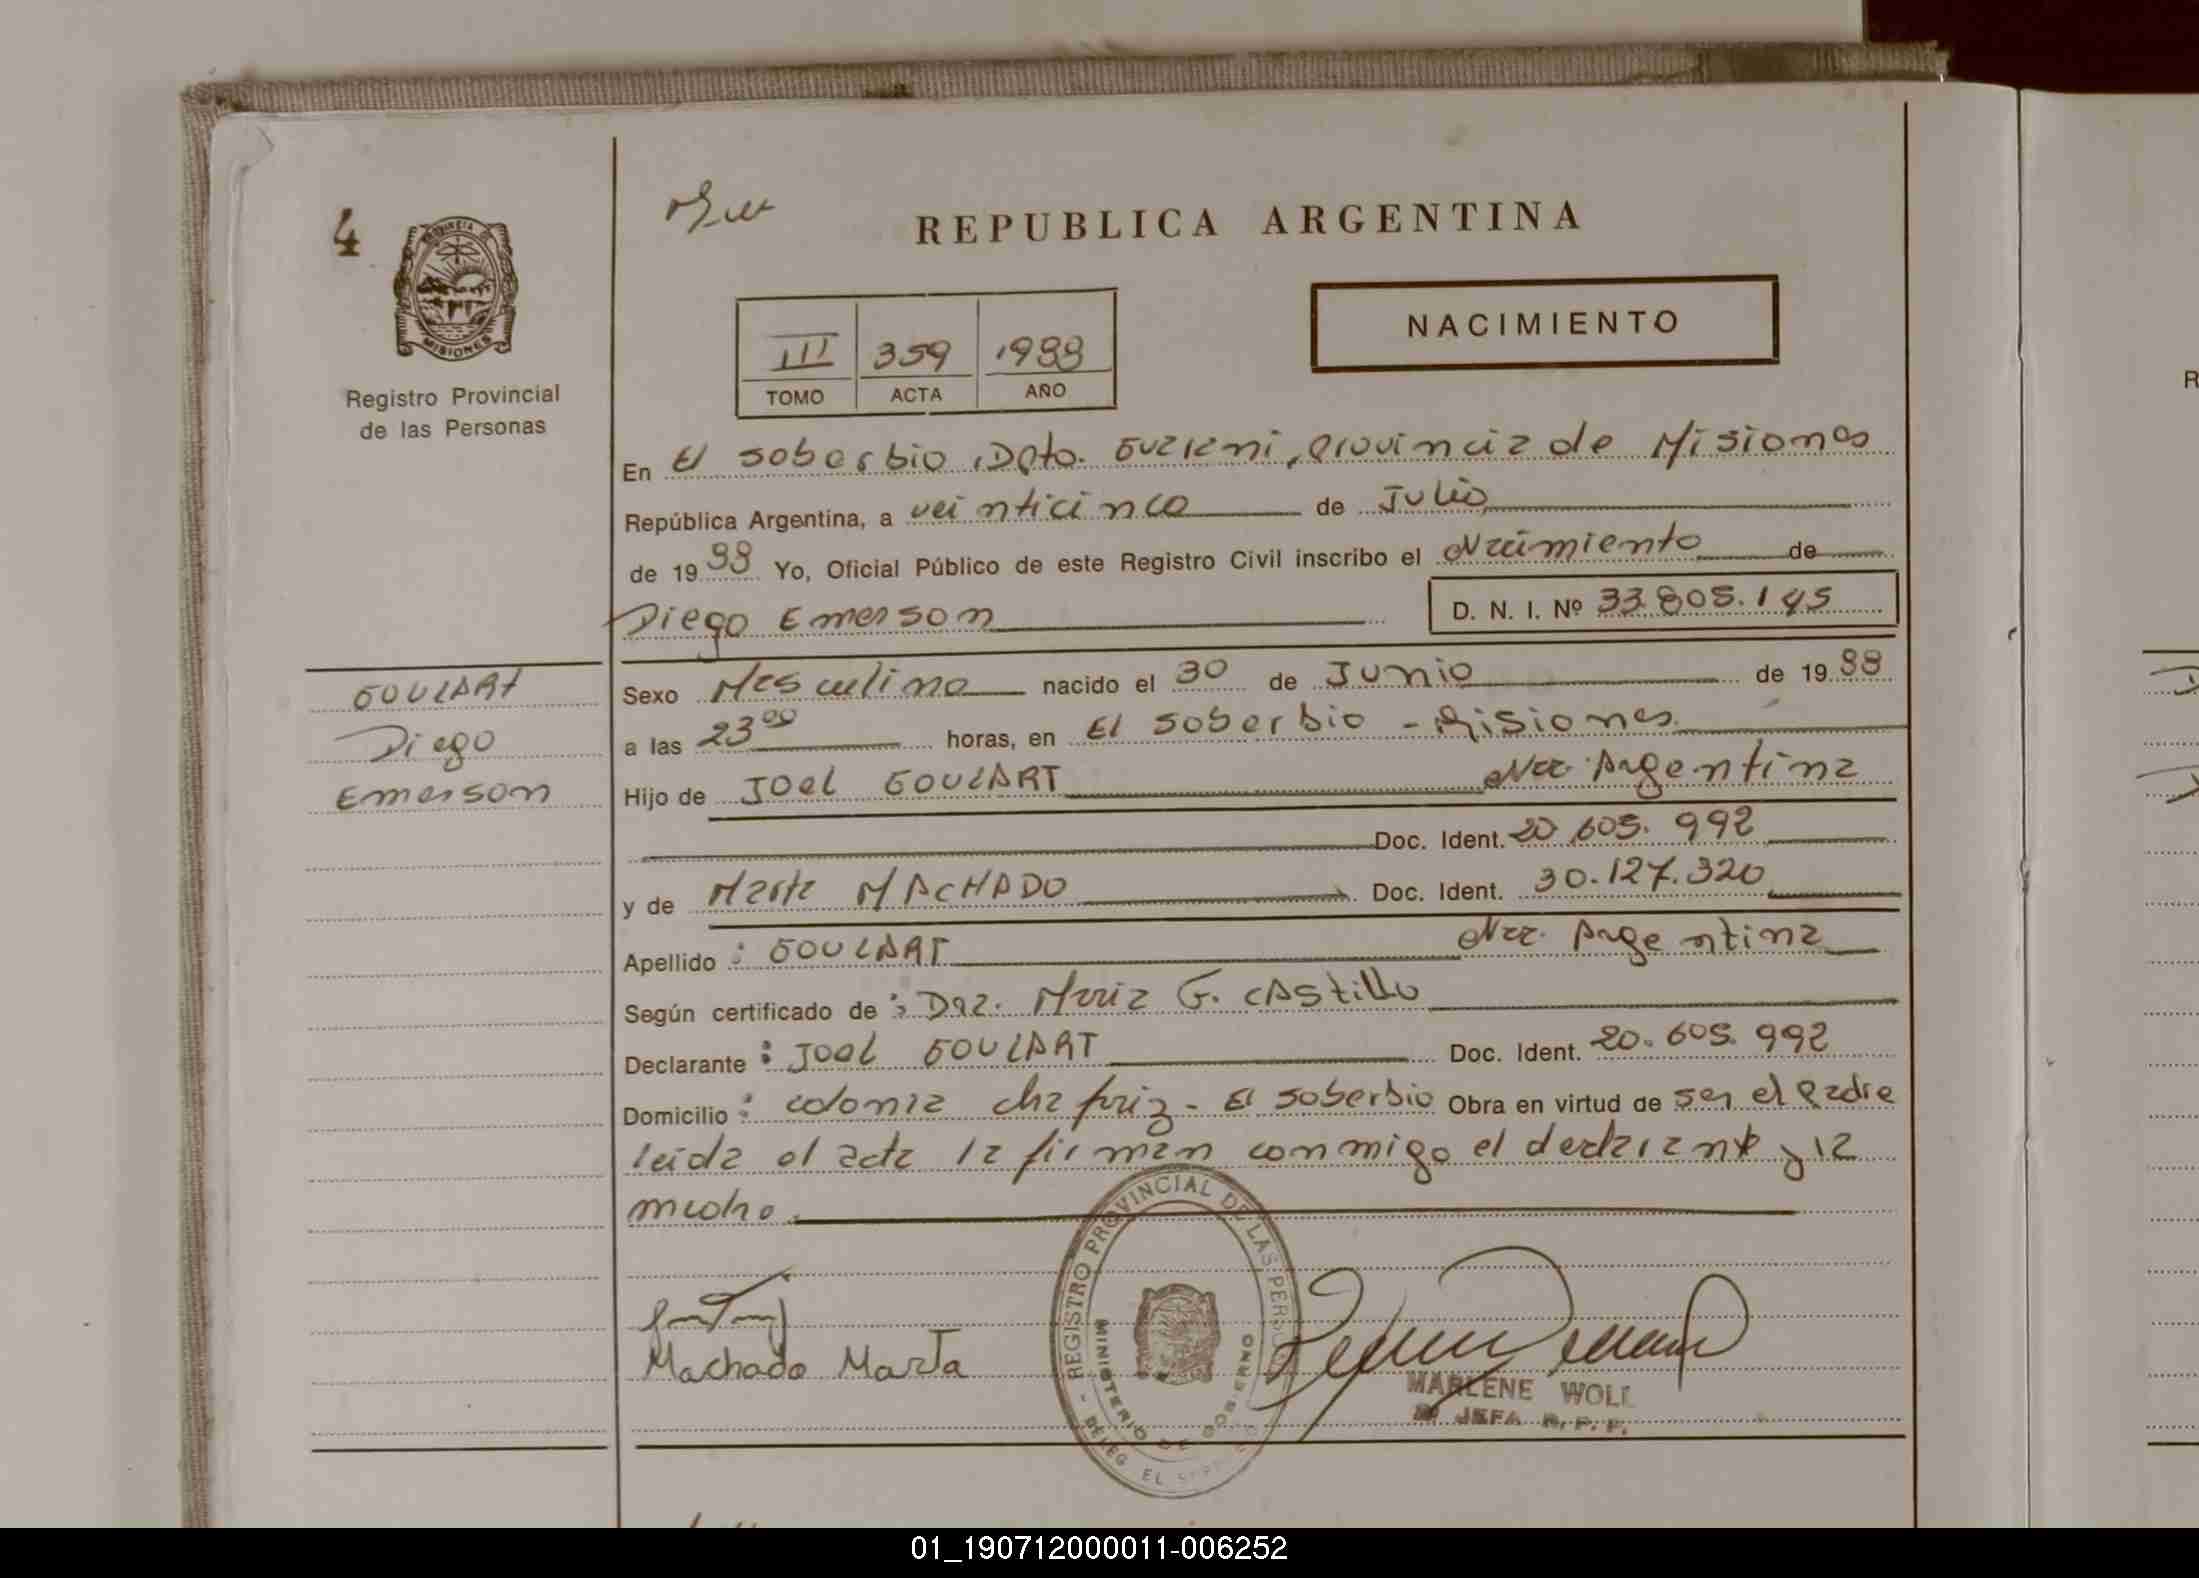 4
REPUBLICA ARGENTINA
NACIMIENTO
III 359 1988
TOMO ACTA AÑO
Registro Provincial
de las Personas
PROVINCIA DE
MISIONES
En El Soberbio, Dpto. Guarani, provincia de Misiones
República Argentina, a veinticinco de Julio
de 1988 Yo, Oficial Público de este Registro Civil inscribo el Nacimiento de
Diego Emerson D. N. I. Nº 33.805.145
GOULART
Diego
Emerson
Sexo Masculino nacido el 30 de Junio de 1988
a las 23 00 horas, en El Soberbio - Misiones
Hijo de Joel GOULART Nac. Argentina
Doc. Ident. 20.605.992
y de Marta MACHADO Doc. Ident. 30.127.320
Apellido: GOULART Nac. Argentina
Según certificado de: Dra. Maria G. Castillo
Declarante: Joel GOULART Doc. Ident. 20.605.992
Domicilio: colonia - El Soberbio Obra en virtud de ser el padre
leida el acta la firman conmigo el declarante y la
madre.
REGISTRO PROVINCIAL DE LAS PERSONAS
MINISTERIO DE GOBIERNO
DELEG EL
Machado Marta
MARLENE WOLL
JEFA R. P. P.
01_190712000011-006252